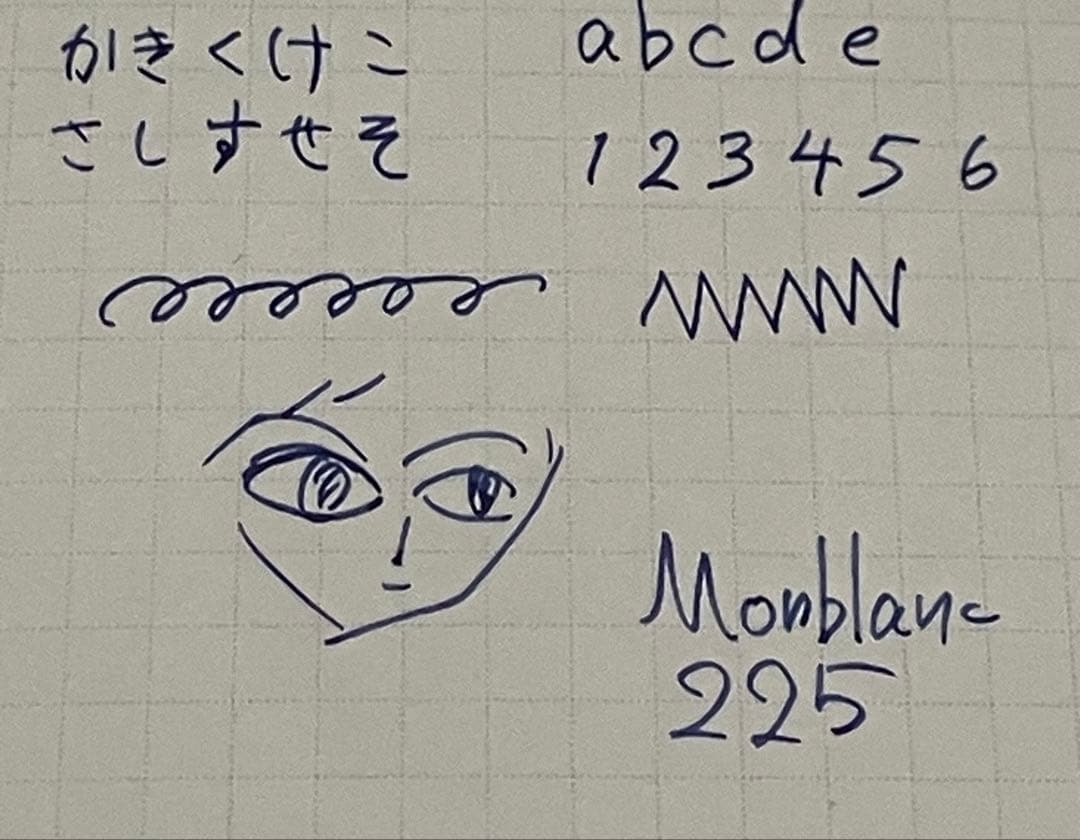 かきくけこ
さしすせそ
abcde
123456
Monblanc
225